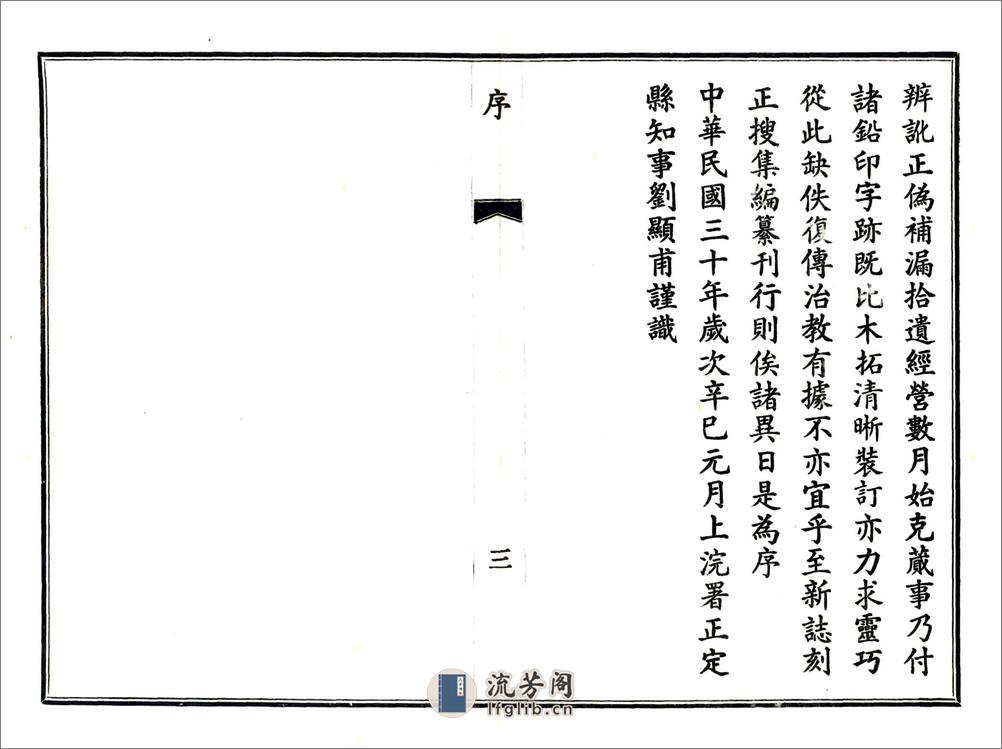 辨訛正偽補漏拾遺經營數月始克蕆事乃付
諸鉛印字跡既比木拓清晰裝訂亦力求靈巧
從此缺佚復傳治教有據不亦宜乎至新誌刻
正搜集編纂刊行則俟諸異日是為序
中華民國三十年歲次辛巳元月上浣署正定
縣知事劉顯甫謹識
序
三
流芳阁
lfglib.cn